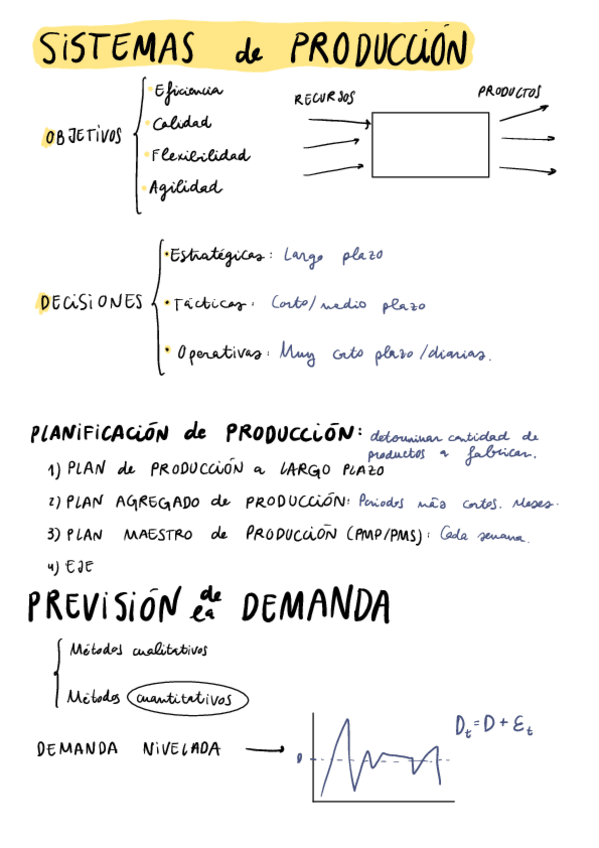 SISTEMAS de PRODUCCIÓN
OBJETIVOS
• Eficiencia
• Calidad
• Flexibilidad
• Agilidad
RECURSOS
PRODUCTOS
DECISIONES
• Estratégicas: Largo plazo
• Tácticas: Corto/medio plazo
• Operativas: Muy corto plazo/diarias.
PLANIFICACIÓN de PRODUCCIÓN: determinar cantidad de
productos a fabricar.
1) PLAN de PRODUCCIÓN a LARGO PLAZO
2) PLAN AGREGADO de PRODUCCIÓN: Periodos más cortos. Meses.
3) PLAN MAESTRO de PRODUCCIÓN (PMP/PMS): Cada semana.
4) EJE
PREVISIÓN de la DEMANDA
Métodos cualitativos
Métodos cuantitativos
DEMANDA NIVELADA
D
Dₜ = D + Ɛₜ